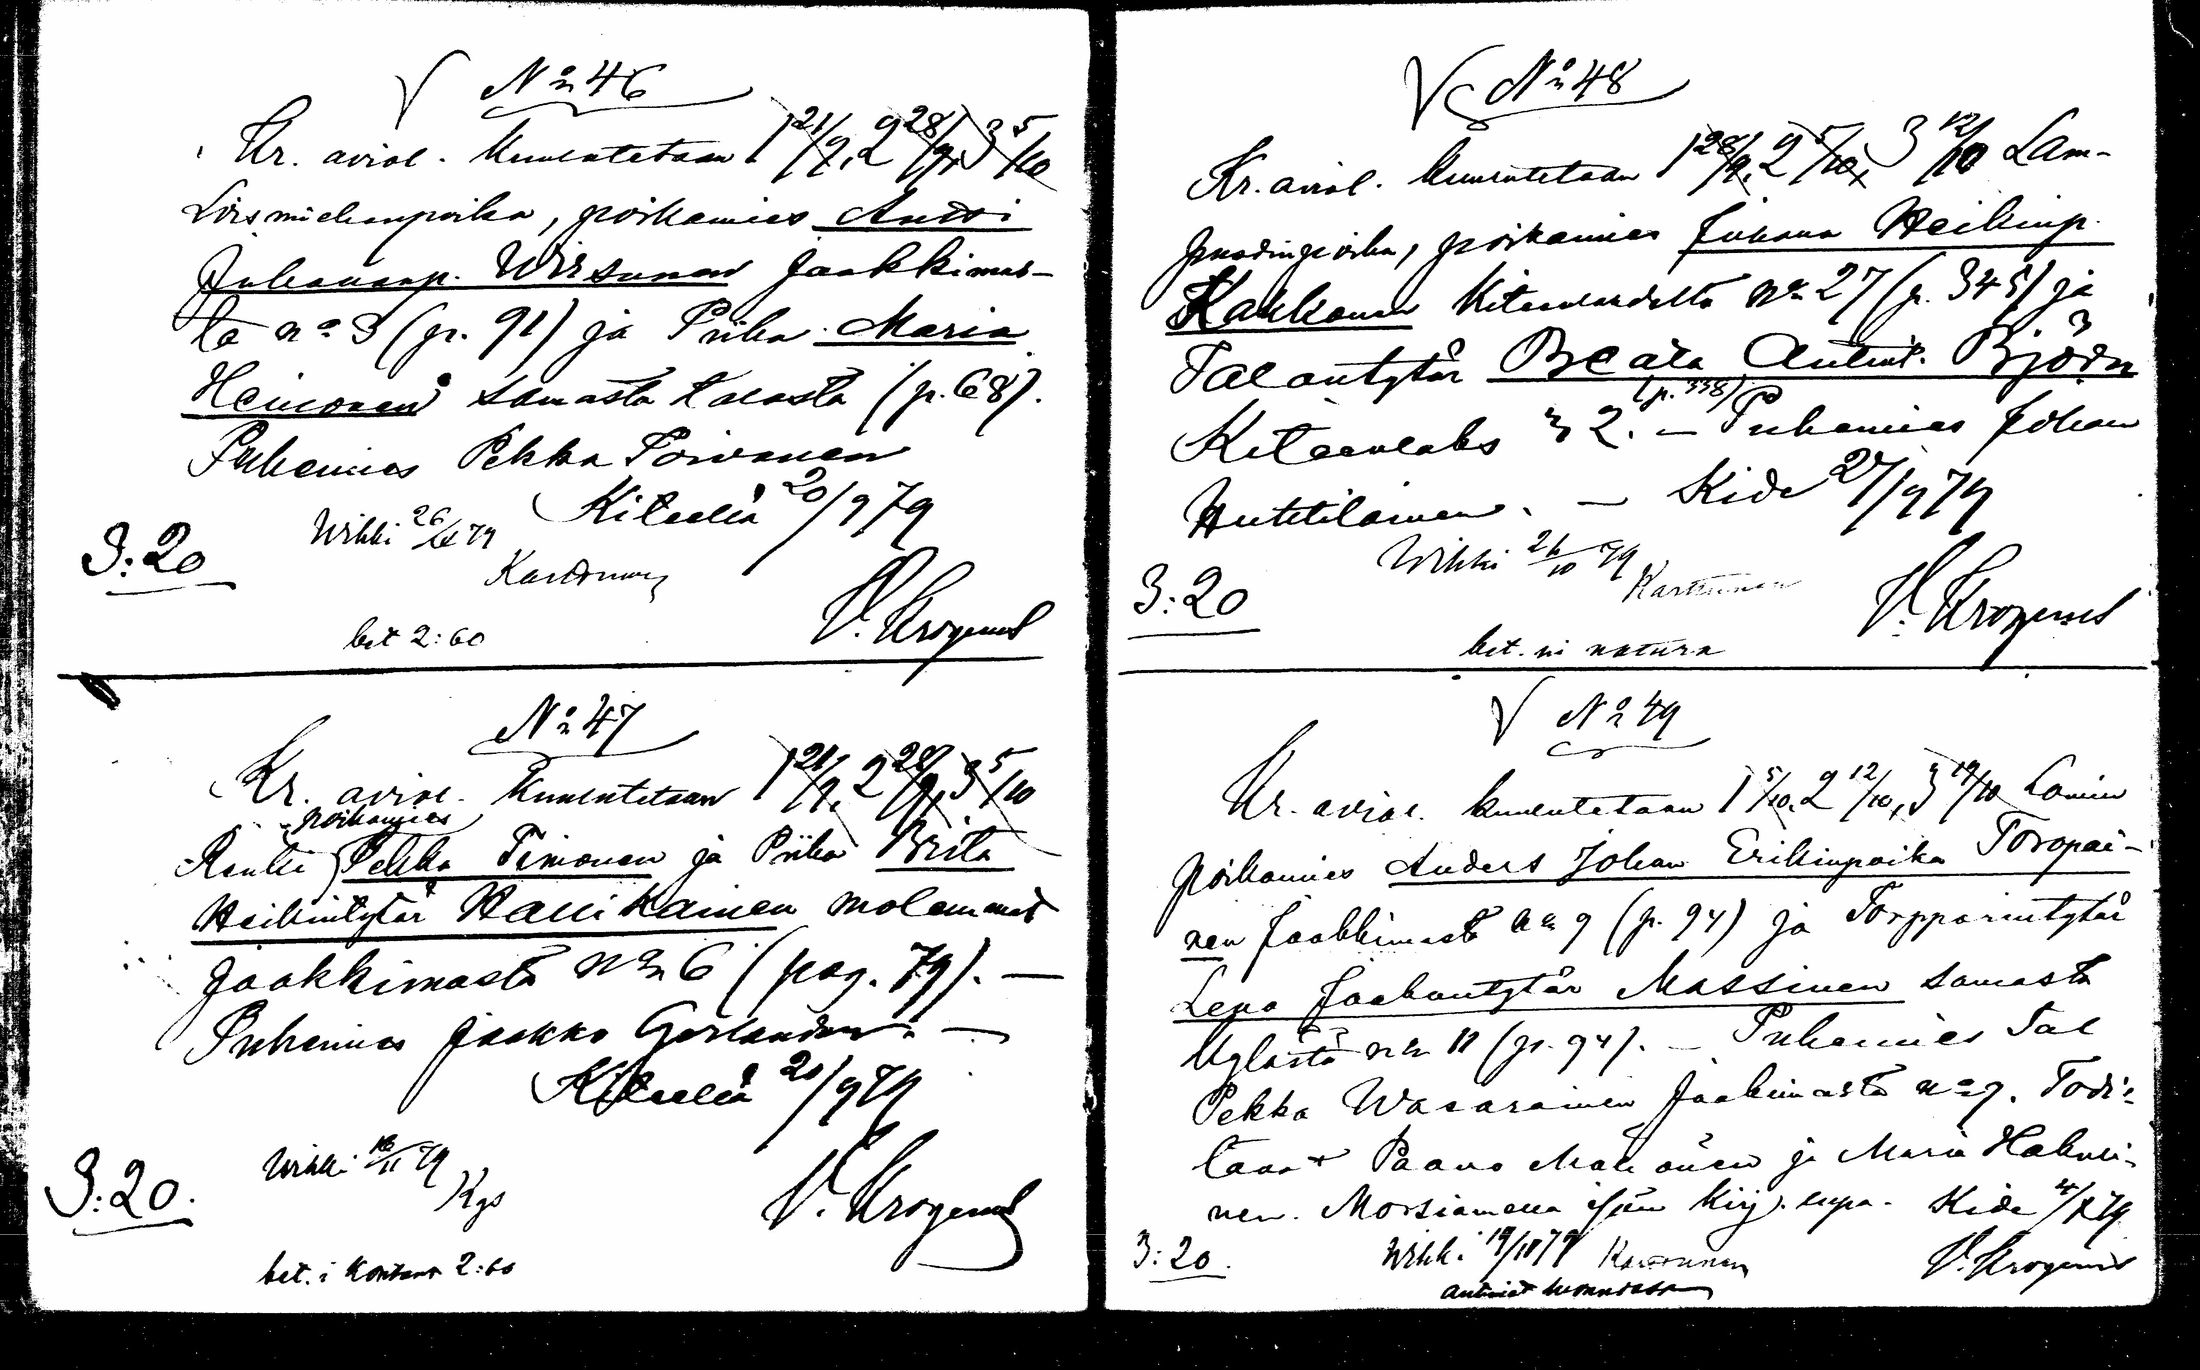 No 46
Kr. aviol. kuulutetaan 1 21/9, 2 28/9, 3 5/10
Loismiehenpoika, poikamies Antti
Juhananp. Wirsunen Jaakkimas-
ta no 3 (p. 91) ja Piika Maria
Heinonen samasta talosta (p. 68).
Puhemies Pekka Toivanen
Kiteellä 20/9 79
Wihki 26/10 79
Karttunen
3:20
V. Krogerus
bet 2:60
No 47
Kr. aviol. kuulutetaan 1 21/9, 2 28/9, 3 5/10
poikamies
Renki Pekka Timonen ja Piika Brita
Heikintytär Hauikainen molemmat
Jaakkimasta No 6 (pag. 79). —
Puhemies Jaakko Gerlander. —
Kiteellä 20/9 79
Wihki 16/11 79
Kgs
3:20.
V. Krogerus
bet. i kontant 2:60
No 48
Kr. aviol. kuulutetaan 1 28/9, 2 5/10, 3 12/10 Lam-
puodinpoika, poikamies Juhana Heikinp.
Kakkonen Kiteenlahdelta No 27 (p. 345) ja
Talontytär Beata Antint. Björn
(p. 338)
Kiteenlaks 2. — Puhemies Johan
Huttilainen. — Kide 27/9 79
Wihki 26/10 79
Karttunen
3:20
V. Krogerus
bet. in natura
No 49
Kr. aviol. kuulutetaan 1 5/10, 2 12/10, 3 19/10 Loinen
poikamies Anders Johan Erikinpoika Toropai-
nen Jaakkimasta No 9 (p. 94) ja Torpparintytär
Lena Jaakontytär Massinen samasta
kylästä No 11 (p. 94). — Puhemies Tal
Pekka Wasarainen Jaakimasta No 7. Todis-
tavat Paavo Makonen ja Maria Hakuli-
nen. Morsiamella isän kirj. lupa. Kide 4/10 79
3:20. Wihki 19/10 79 Karttunen V. Krogerus
antimet luonnossa